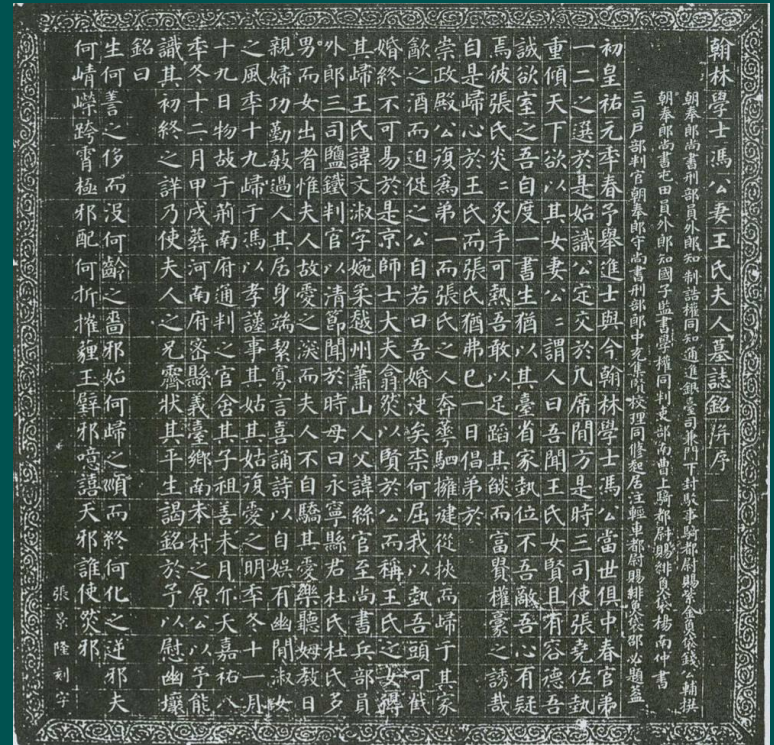 翰林學士馮公妻王氏夫人墓誌銘併序
朝奉郎尚書刑部員外郎知制誥權同知通進銀臺司兼門下封駮事騎都尉賜紫金魚袋錢公輔撰
朝奉郎尚書屯田員外郎知國子監書學權同判吏部南曹上騎都尉賜緋魚袋楊南仲書
三司戶部判官朝奉郎守尚書刑部郎中充集賢校理同修起居注輕車都尉賜緋魚袋邵必題蓋
初皇祐元年春予舉進士與今翰林學士馮公當世俱中春官弟
一二之選於是始識公定交於几席間方是時三司使張堯佐埶
重傾天下欲以其女妻公〻謂人曰吾聞王氏女賢且有容德吾
誠欲室之吾自度一書生猶以其臺省家埶位不吾敵吾心有疑
焉彼張氏炎〻炙手可熱吾敢以足蹈其燄而富貴權豪之誘哉
自是歸心於王氏而張氏猶弗已一日倡弟於
崇政殿公復爲弟一而張氏之人奔轝駟擁建從挾而歸于其家
歃之酒而迫促之公自若曰吾婚決矣柰何屈我以埶吾頭可截
婚終不可易於是京師士大夫翕然以賢於公而稱王氏之女得
其歸王氏諱文淑字婉柔越州蕭山人父諱絲官至尚書兵部員
外郎三司鹽鐵判官以清節聞於時母曰永寧縣君杜氏杜氏多
男而女出者惟夫人故愛之深而夫人不自驕其愛樂聽姆教日
親婦功勤敏過人其居身端絜寡言喜誦詩以自娛有幽閒淑女
之風年十九歸于馮以孝謹事其姑其姑復愛之明年冬十一月
十九日物故于荊南府通判之官舍其子祖善未月亦夭嘉祐八
年冬十二月甲戌葬河南府密縣義臺鄉南朱村之原公以予能
識其初終之詳乃使夫人之兄霽狀其平生謁銘於予以慰幽壤
銘曰
生何善之侈而沒何齡之嗇邪始何歸之順而終何化之逆邪夫
何崝嶸跨霄極邪配何折摧薶玉璧邪噫譆天邪誰使然邪
張景隆刻字